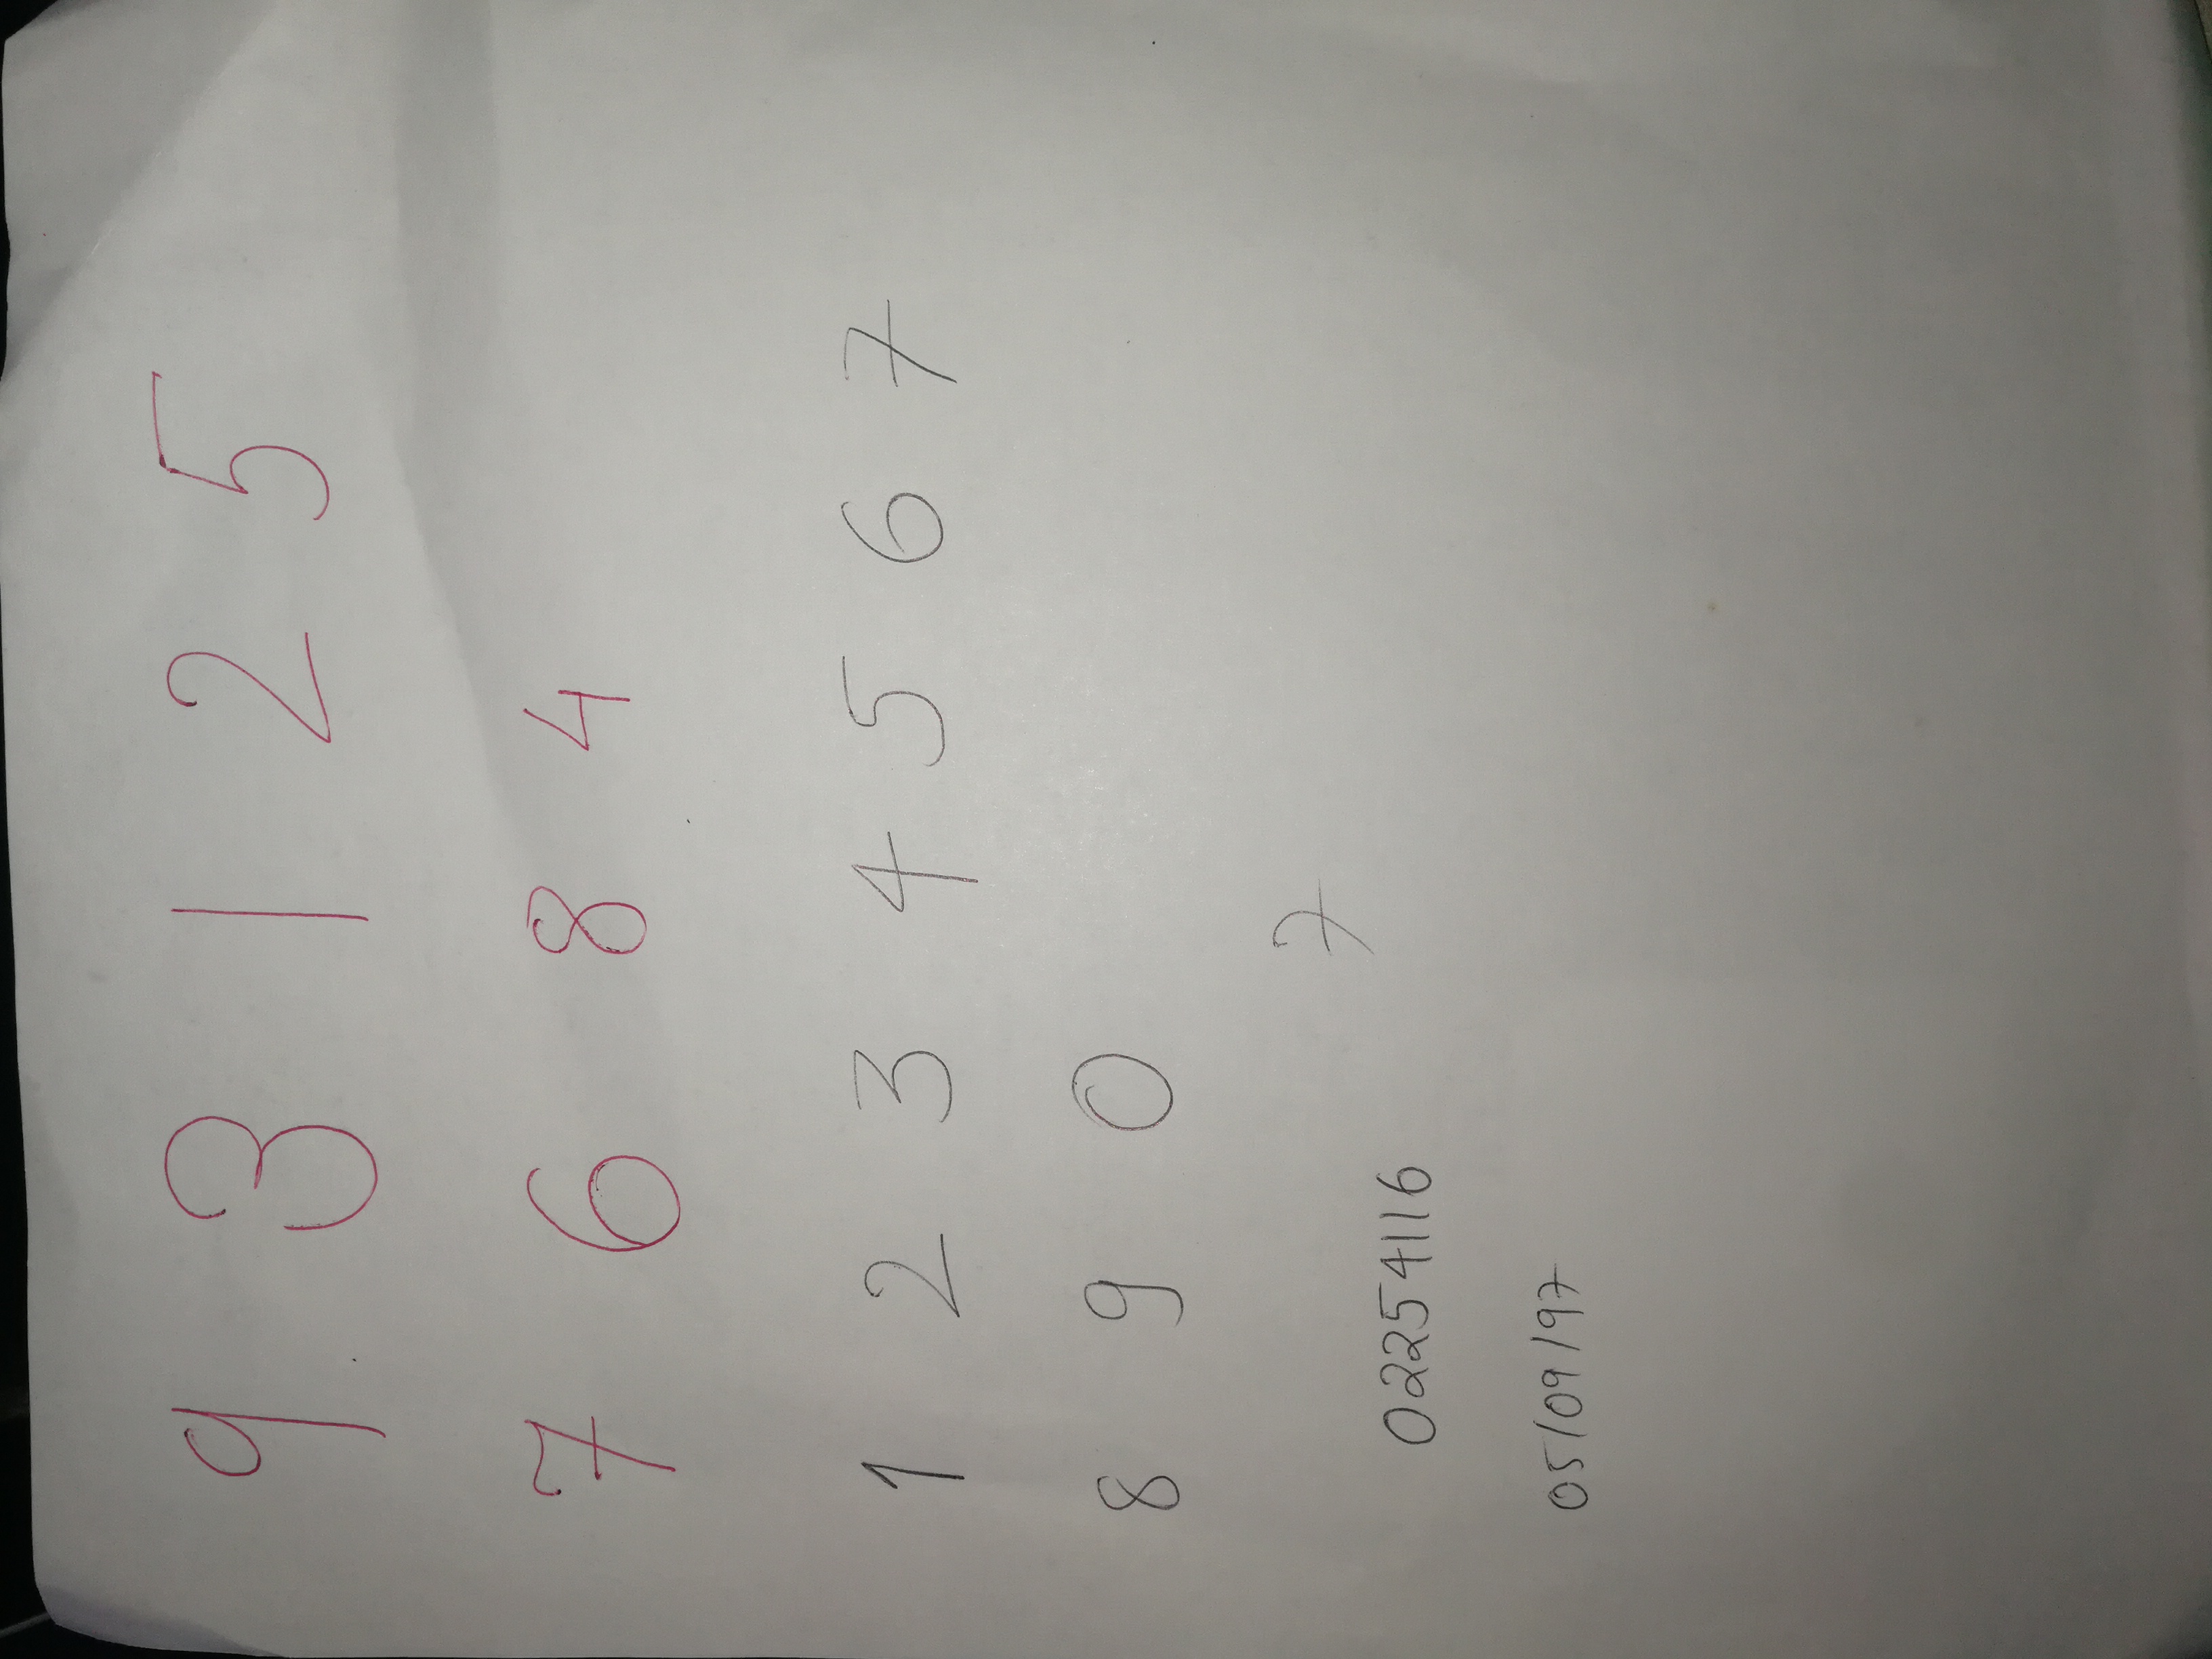 9 3 1 2 5
7 6 8 4
1 2 3 4 5 6 7
8 9 0
7
02254116
05/09/97